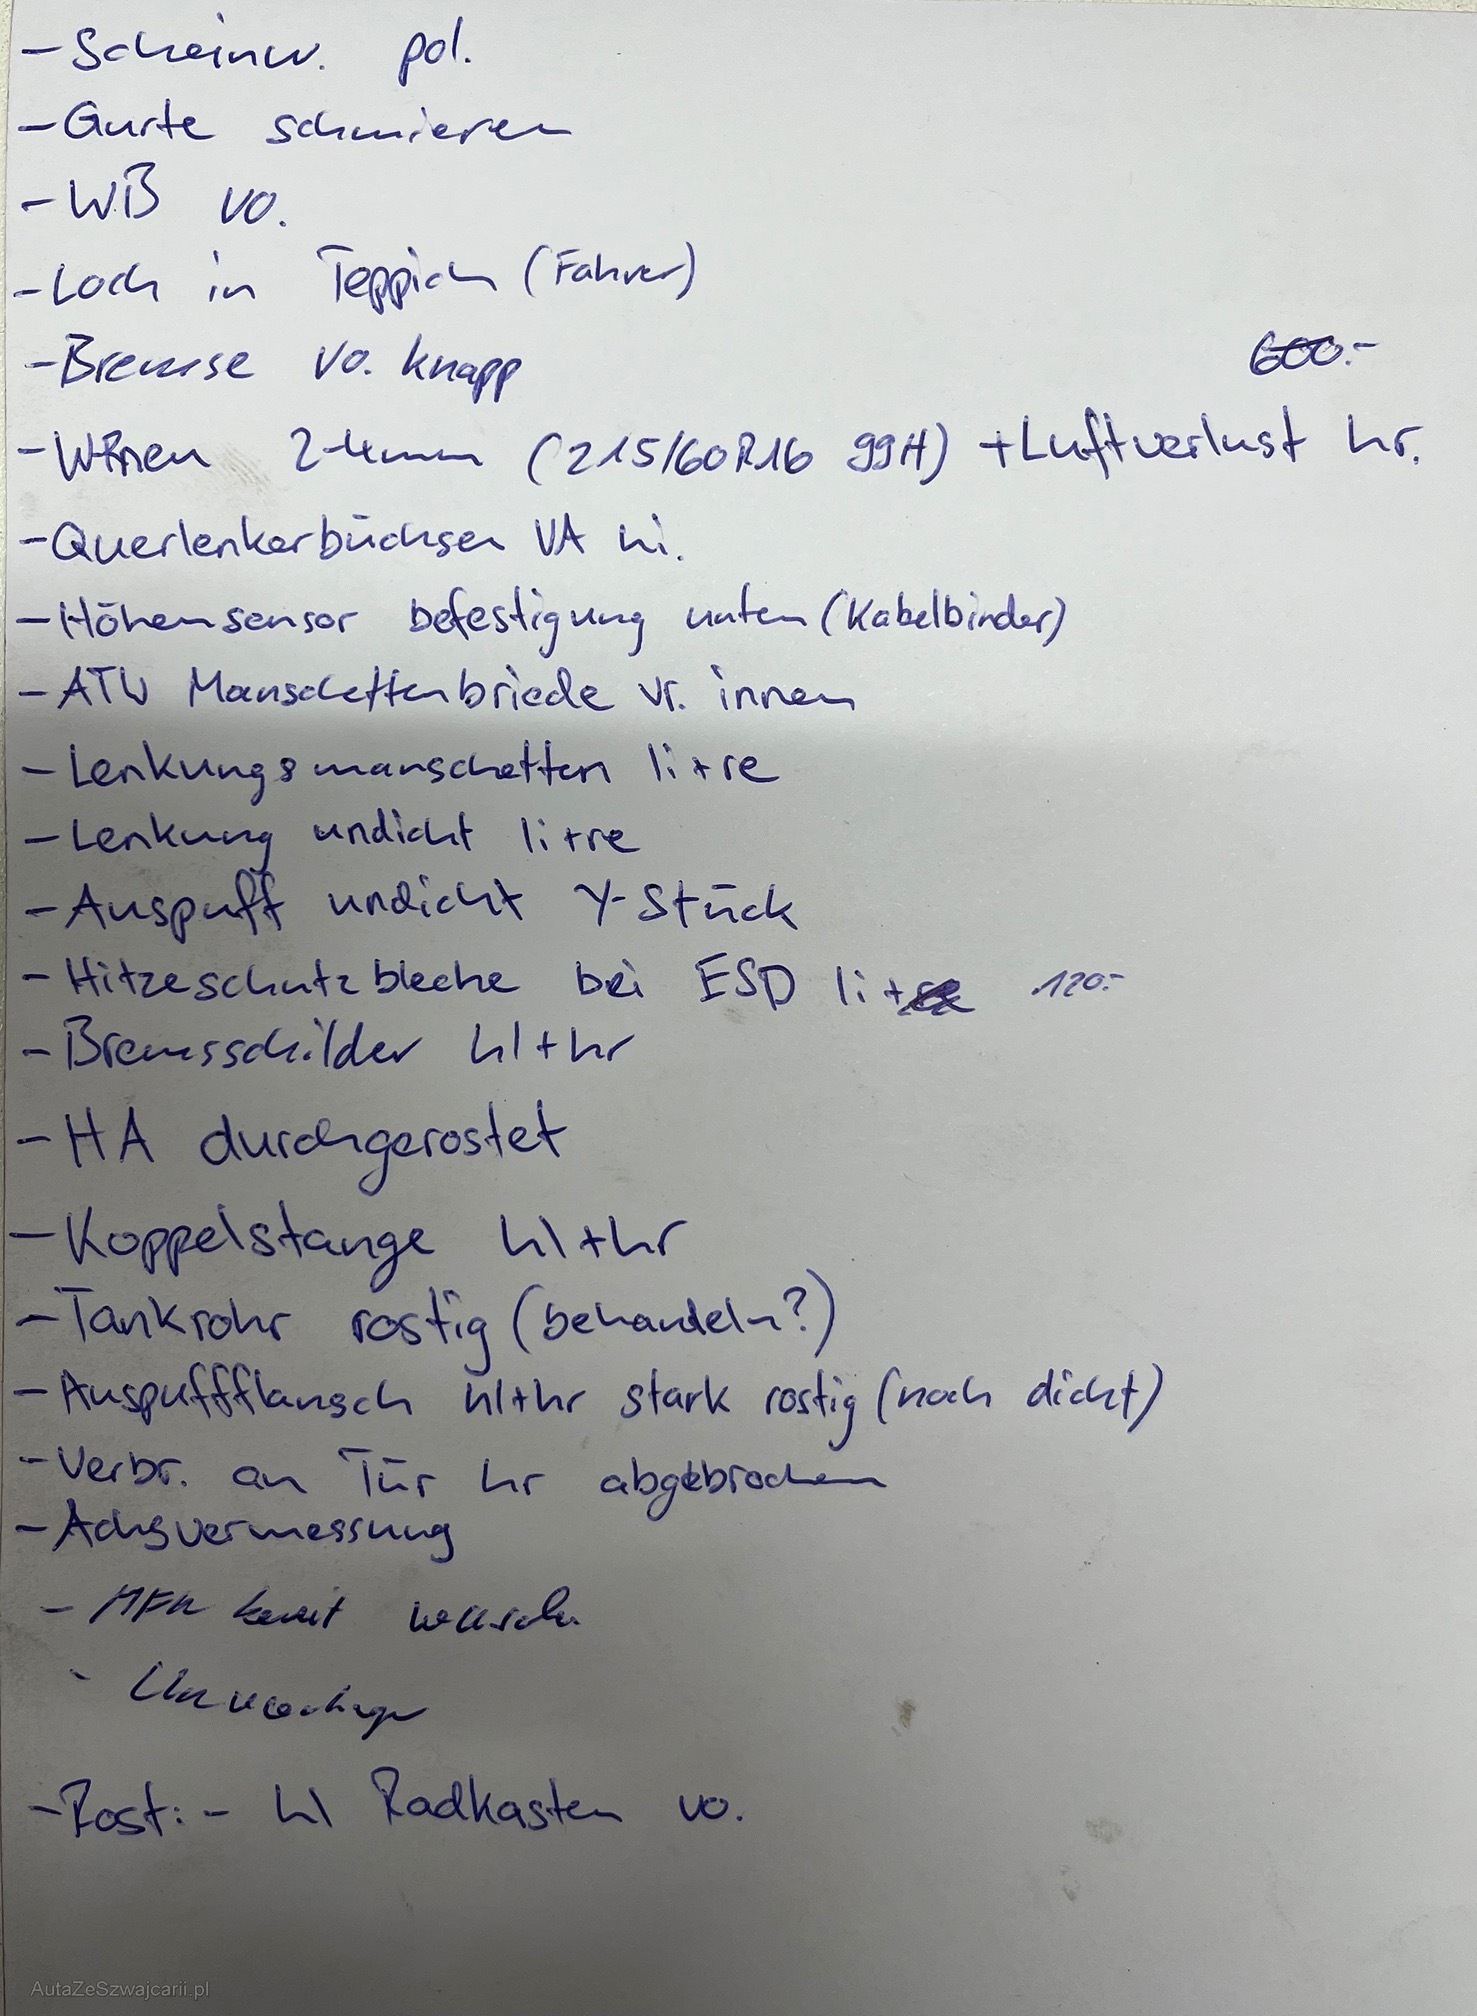 - Scheinw. pol.
- Gurte schmieren
- WB vo.
- Loch in Teppich (Fahrer)
- Bremse vo. knapp
600.-
- 2-4mm (215/60R16 99H) + Luftverlust hr.
- Querlenkerbüchsen VA hi.
- Höhensensor befestigung unten (Kabelbinder)
- ATW Manschettenbriede vr. innen
- Lenkungsmanschetten li+re
- Lenkung undicht li+re
- Auspuff undicht Y-Stück
- Hitzeschutzbleche bei ESD li+re 120.-
- Bremsschilder hl+hr
- HA durchgerostet
- Koppelstange hl+hr
- Tankrohr rostig (behandeln?)
- Auspuffflansch hl+hr stark rostig (noch dicht)
- Verbr. an Tür hr abgebrochen
- Achsvermessung
- MFK
- Rost: - hl Radkasten vo.
AutaZeSzwajcarii.pl